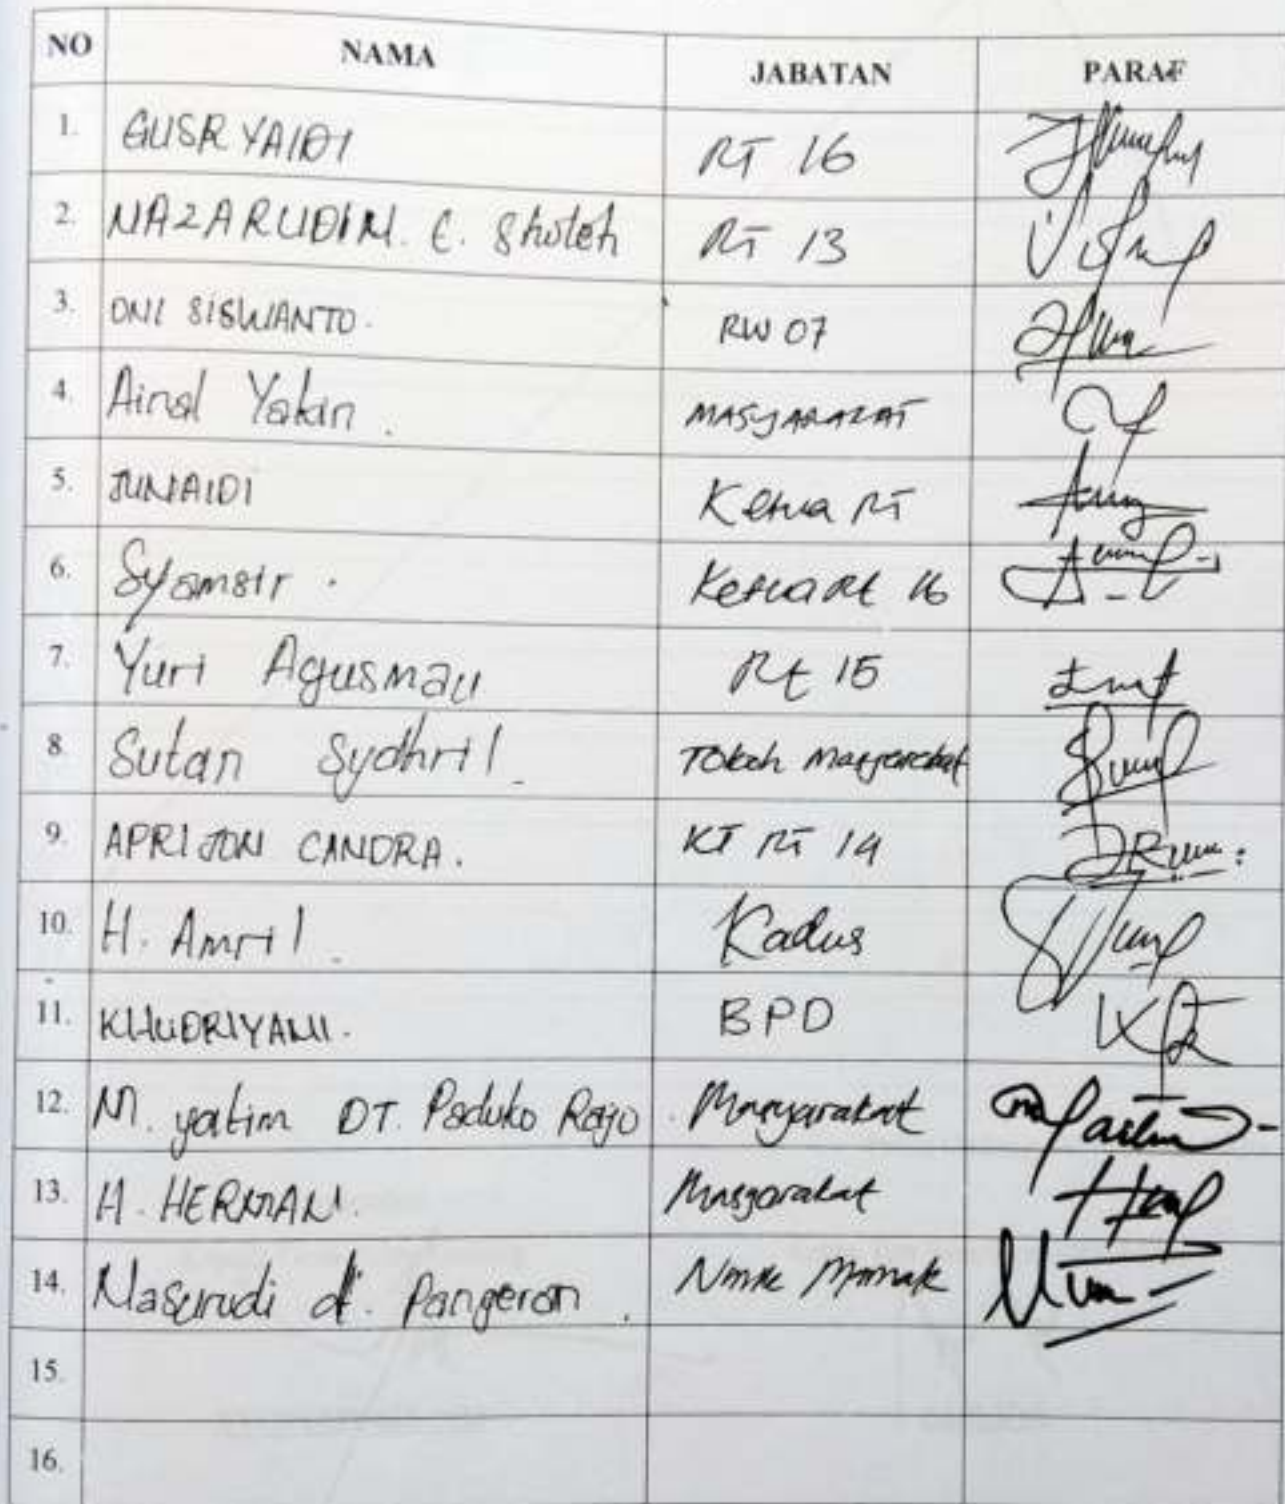 NO NAMA JABATAN PARAF
1. GUSRYAIDI RT 16
2. NAZARUDIN. E. Sholeh RT 13
3. ONI SISWANTO. RW 07
4. Ainal Yakin. MASYARAKAT
5. JUNAIDI Ketua RT
6. Syamsir. Ketua Rt 16
7. Yuri Agusmau Rt 15
8. Sutan Sydhril. Tokoh Masyarakat
9. APRIJON CANDRA. KT RT 14
10. H. Amril. Kadus
11. KHUDRIYANI. BPD
12. M. yatim DT. Paduko Rajo. Masyarakat
13. H. HERMAN. Masyarakat
14. dt. Pangeran. Ninik Mamak
15.
16.